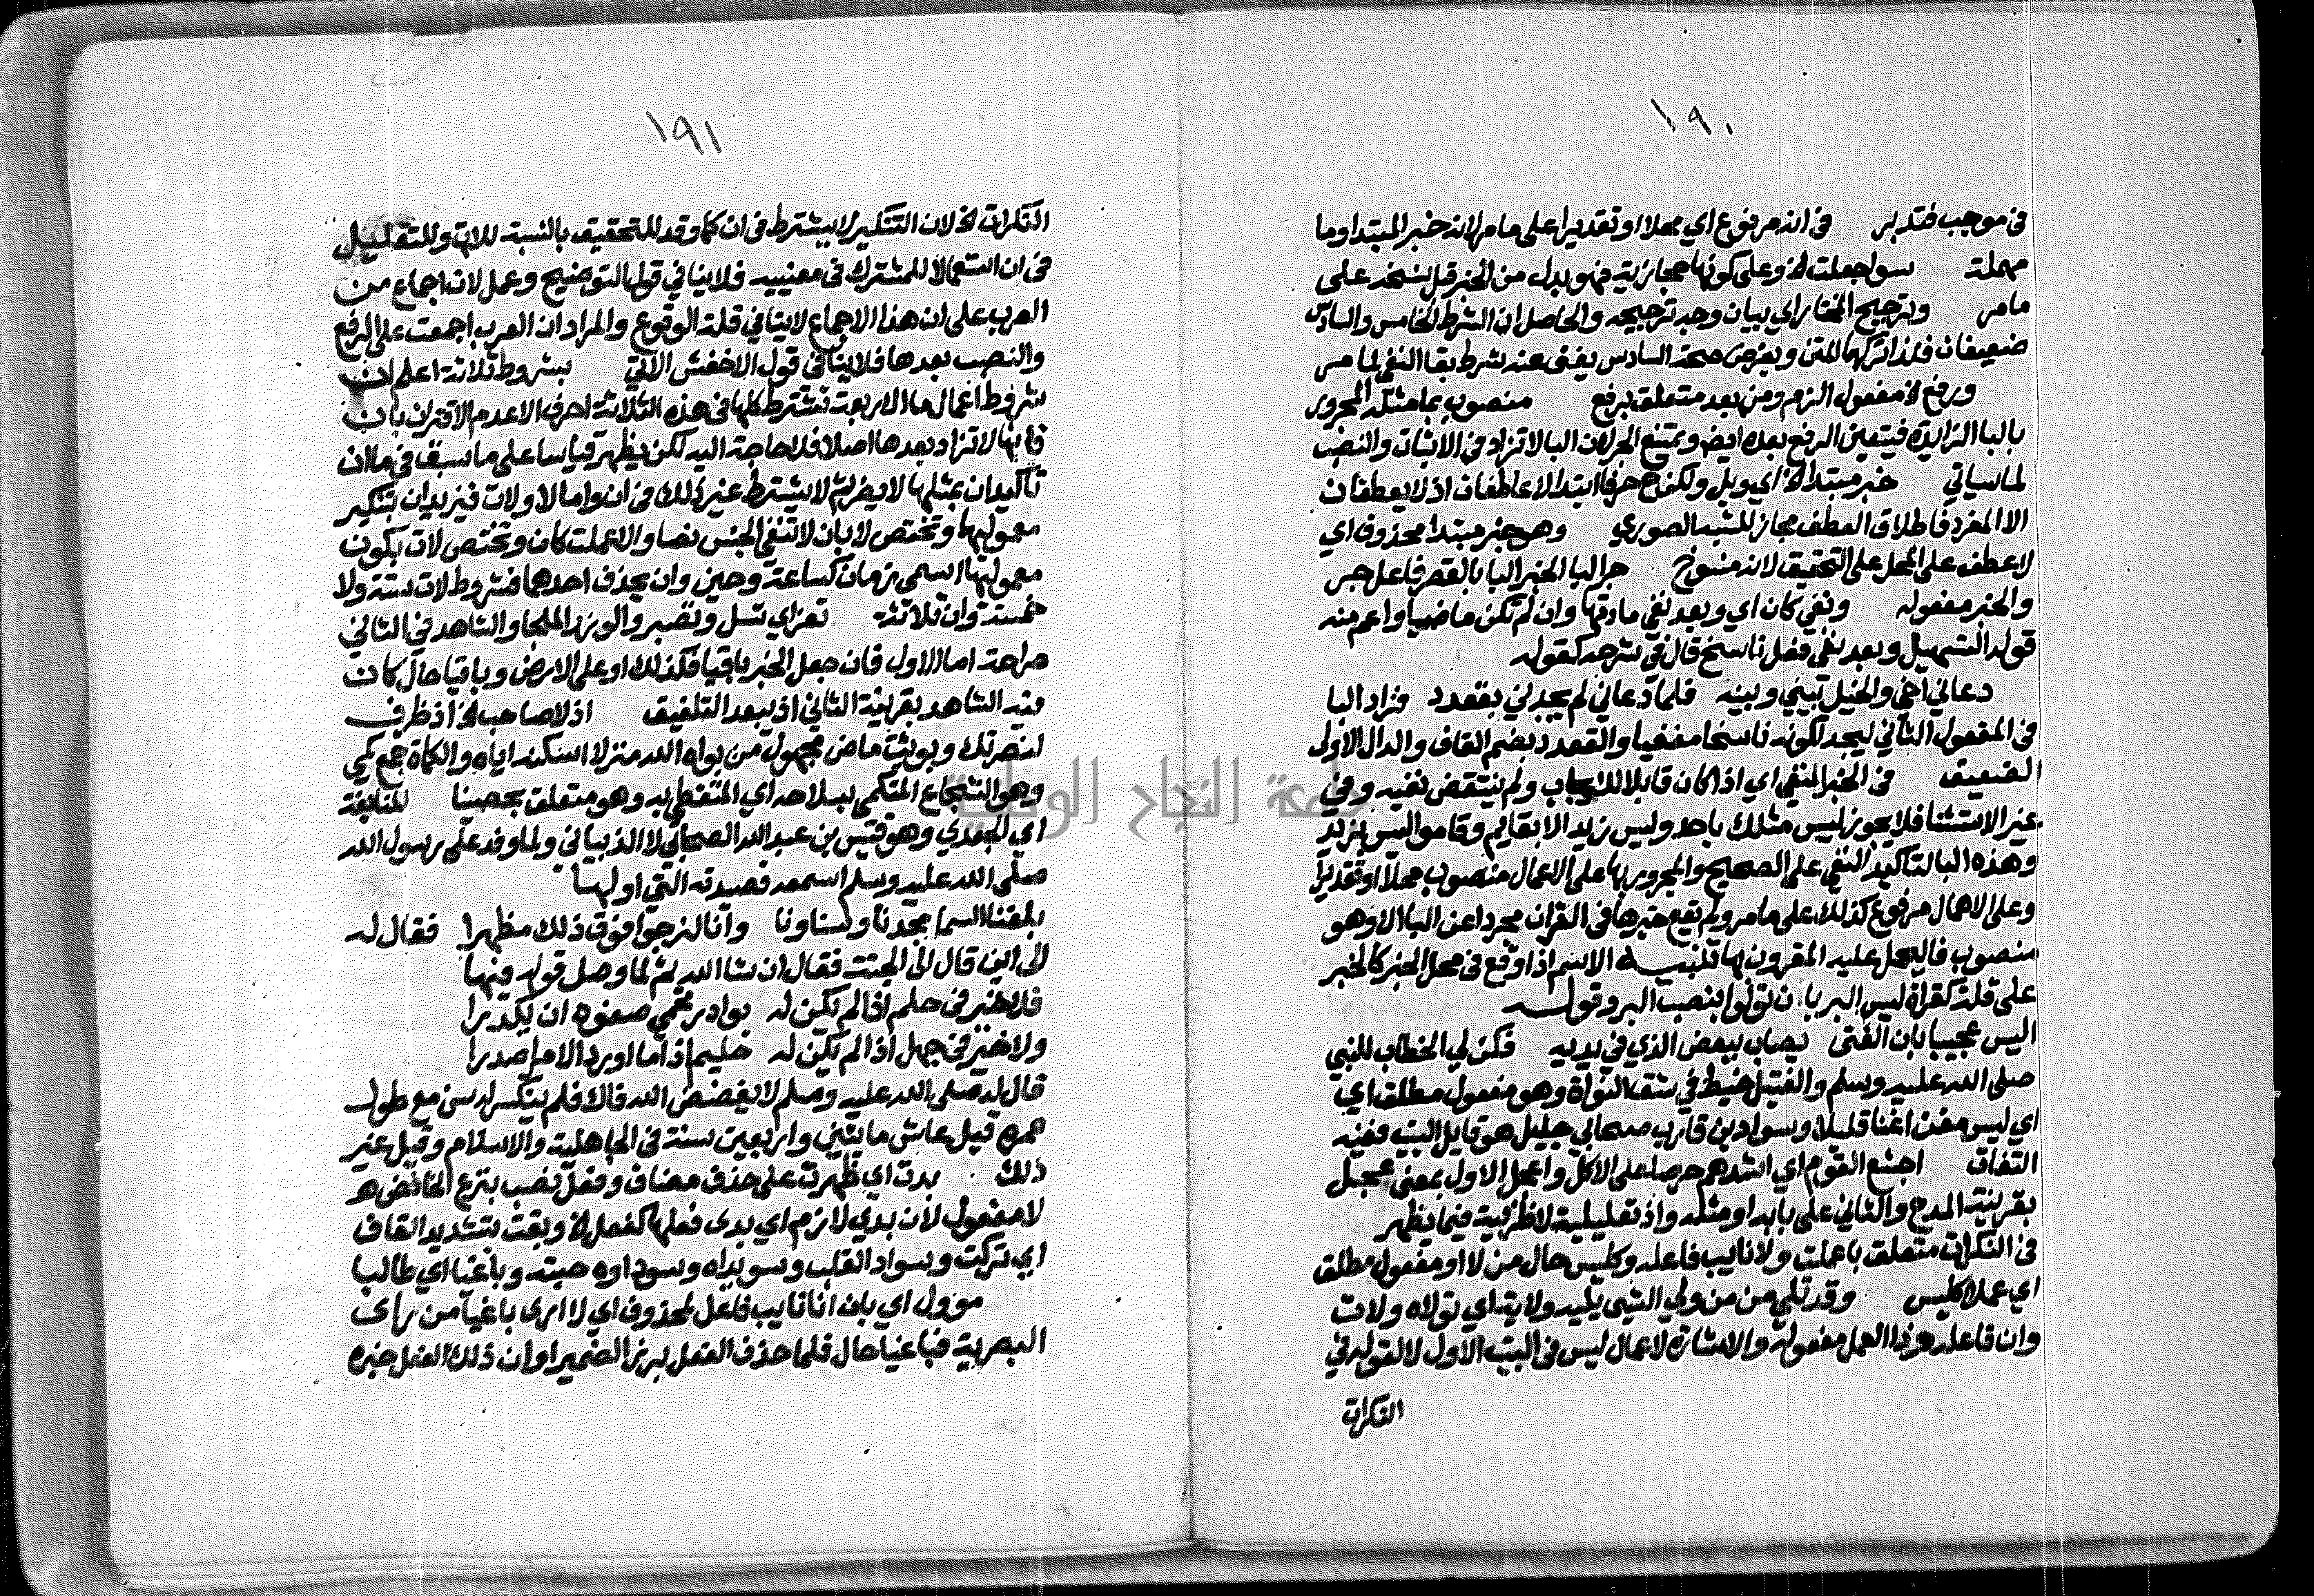 ١٩٠
في موجب فتدبر في انه مرفوع اي محلا او تقديرا على ما مر لانه خبر المبتدا وما
مهملة سوا جعلت الخ وعلى كونها حجازية فهو بدل من الخبر قبل نسخه على
ما مر وترجيح المختار اي بيان وجه ترجيحه والحاصل ان الشرط الخامس والسادس
ضعيفان فلذا تركهما المتن وبفرض صحة السادس يغني عنه شرط بقا النفي لما مر
ورفع الخ مفعول الزم ومن بعد متعلق برفع منصوب بما مثله المجرور
بالبا الزايدة فيتعين الرفع بعده ايض ويمتنع الجر لان البا لا تزاد في الاثبات والنصب
لما سياتي خبر مبتدا الخ اي وبل ولكن ح حرفا ابتدا لا عاطفان اذ لا يعطفان
الا المفرد فاطلاق العطف مجاز للشبه الصوري وهو خبر مبتدا محذوف اي
لا عطف على المحل على التحقيق لانه منسوخ جر البا الخبر البا بالقصر فاعل جر
والخبر مفعوله ونفي كان اي وبعد نفي مادتها وان لم تكن ماضيا واعم منه
قوله التسهيل وبعد نفي فعل ناسخ قال في شرحه كقوله
دعاني اخي والخيل بيني وبينه فلما دعاني لم يجدني بقعدد فزاد البا
في المفعول الثاني ليجد لكونه ناسخا منفيا والقعدد بضم القاف والدال الاولى
الضعيف في الخبر المنفي اي اذا كان قابلا للايجاب ولم ينتقض نفيه وفي
غير الاستثنا فلا يجوز ليس مثلك باحد وليس زيد الا بقايم وقاموا ليس بزيد
وهذه البا لتاكيد النفي على الصحيح والمجرور بها على الاعمال منصوب محلا او تقديرا
وعلى الاهمال مرفوع كذلك على ما مر ولم يقع خبرها في القران مجردا عن البا الا وهو
منصوب فاليحمل عليه المقرون بها تنبيه الاسم اذا وقع في محل الخبر كالخبر
على قلة كقراة ليس البر بان تولوا بنصب البر وقوله
اليس عجيبا بان الفتى يصاب ببعض الذي في يديه فكن لي الخطاب للنبي
صلى الله عليه وسلم والفتيل خيط في شق النواة وهو مفعول مطلق اي
اي ليس مغن اغنا قليلا وسواد بن قارب صحابي جليل هو قايل البيت ففيه
التفات اجشع القوم اي اشدهم حرصا على الاكل واعجل الاول بمعنى عجل
بقرينة المدح والثاني على بابه او مثله واذ تعليلية لا ظرفية فيما يظهر
في النكرات متعلق باعملت ولا نايب فاعله وكليس حال من لا او مفعول مطلق
اي عملا كليس وقد تلي من من ولي الشي يليه ولاية اي تولاه ولات
وان فاعله وذا العمل مفعوله والاشارة لاعمال ليس في البيت الاول لا لقوله في
النكرات
١٩١
النكرات الخ لان التنكير لا يشترط في ان كما وقد للتحقيق بالنسبة للات وللتقليل
في ان استعمالا للمشترك في معنييه فلا ينافي قول التوضيح وعمل لات اجماع من
العرب على ان هذا الاجماع لا ينافي قلة الوقوع والمراد ان العرب اجمعت على الرفع
والنصب بعدها فلا ينافي قول الاخفش الاتي بشروط ثلاثة اعلم ان
شروط اعمال ما الاربعة تشترط كلها في هذه الثلاثة احرف الا عدم الاقتران بان
فانها لا تزاد بعدها اصلا فلا حاجة اليه لكن يظهر قياسا على ما سبق في ما ان
تاكيد ان بمثلها لا يضر ثم لا يشترط غير ذلك في ان واما لا ولات فيزيدان بتنكير
معموليها وتختص لا بان لا تنفي الجنس نصا والا عملت كان وتختص لات بكون
معموليها اسمي زمان كساعة وحين وان يحذف احدهما فشروط لات ستة ولا
خمسة وان ثلاثة تعز اي تسل وتصبر والوزر الملجا والشاهد في الثاني
صراحة اما الاول فان جعل الخبر باقيا فكذلك او على الارض وباقيا حال كان
فيه الشاهد بقرينة الثاني اذ يبعد التلفيق اذ لا صاحب الخ اذ ظرف
لنصرتك وبوئت ماض مجهول من بواه الله منزلا اسكنه اياه والكماة جمع كمي
وهو الشجاع المتكمي بسلاحه اي المتغطي به وهو متعلق بحصينا للنابغة
اي الجعدي وهو قيس بن عبد الله الصحابي لا الذبياني ولما وفد على رسول الله
صلى الله عليه وسلم اسمعه قصيدته التي اولها
بلغنا السما بمجدنا وسناونا وانا لنرجوا فوق ذلك مظهرا فقال له
الى اين قال الى الجنة فقال ان شا الله ثم لما وصل قوله فيها
فلا خير في حلم اذا لم تكن له بوادر تحمي صفوه ان يكدرا
ولا خير في جهل اذا لم تكن له حليم اذا ما اورد الامر اصدرا
قال له صلى الله عليه وسلم لا يفضض الله فاك فلم ينكسر له سن مع طول
عمره قيل عاش مايتين واربعين سنة في الجاهلية والاسلام وقيل غير
ذلك بدت اي ظهرت على حذف مضاف وفعل نصب بنزع الخافض هو
لا مفعول لان بدي لازم اي بدى فعلها كفعل الخ وبقت بتشديد القاف
اي تركت وسواد القلب وسويداه وسوداوه حبته وباغيا اي طالبا
موول اي بان انا نايب فاعل لمحذوف اي لا ارى باغيا من راى
البصرية فباغيا حال فلما حذف الفعل برز الضمير او ان ذلك الفعل خبره